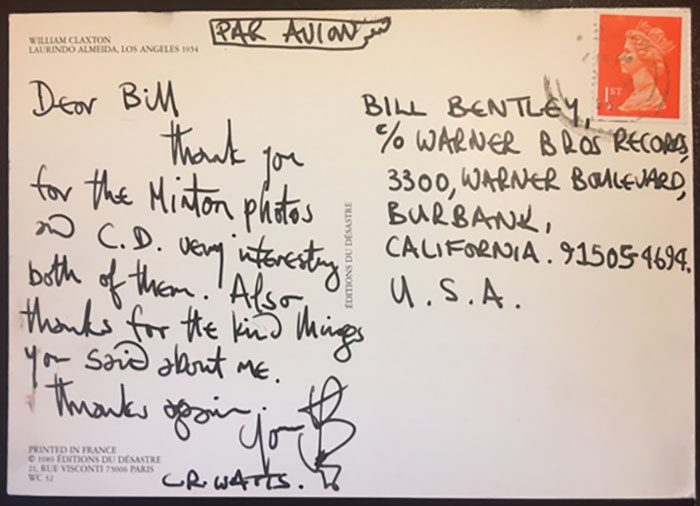 WILLIAM CLAXTON
LAURINDO ALMEIDA, LOS ANGELES 1954
PAR AVION
1ST
Dear Bill
Thank you
for the Minton photos
and C.D. very interesting
both of them. Also
thanks for the kind things
you said about me.
Thanks again.
C.R. WATTS.
BILL BENTLEY,
c/o WARNER BROS RECORDS,
3300, WARNER BOULEVARD,
BURBANK,
CALIFORNIA. 91505-4694.
U.S.A.
ÉDITIONS DU DÉSASTRE
PRINTED IN FRANCE
© 1989 ÉDITIONS DU DÉSASTRE
21, RUE VISCONTI 75006 PARIS
WC 32